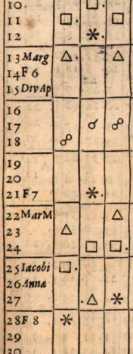 10. □.
11 □. △
12 ⚹.
13 Marg △. △
14 F 6
15 DivAp
16
17 ☌ ☍
18 ☍
19
20
21 F 7 ⚹.
22 MarM △
23 △
24 □ □.
25 Iacobi □.
26 Anna
27 .△ ⚹
28 F 8 ⚹
29
30